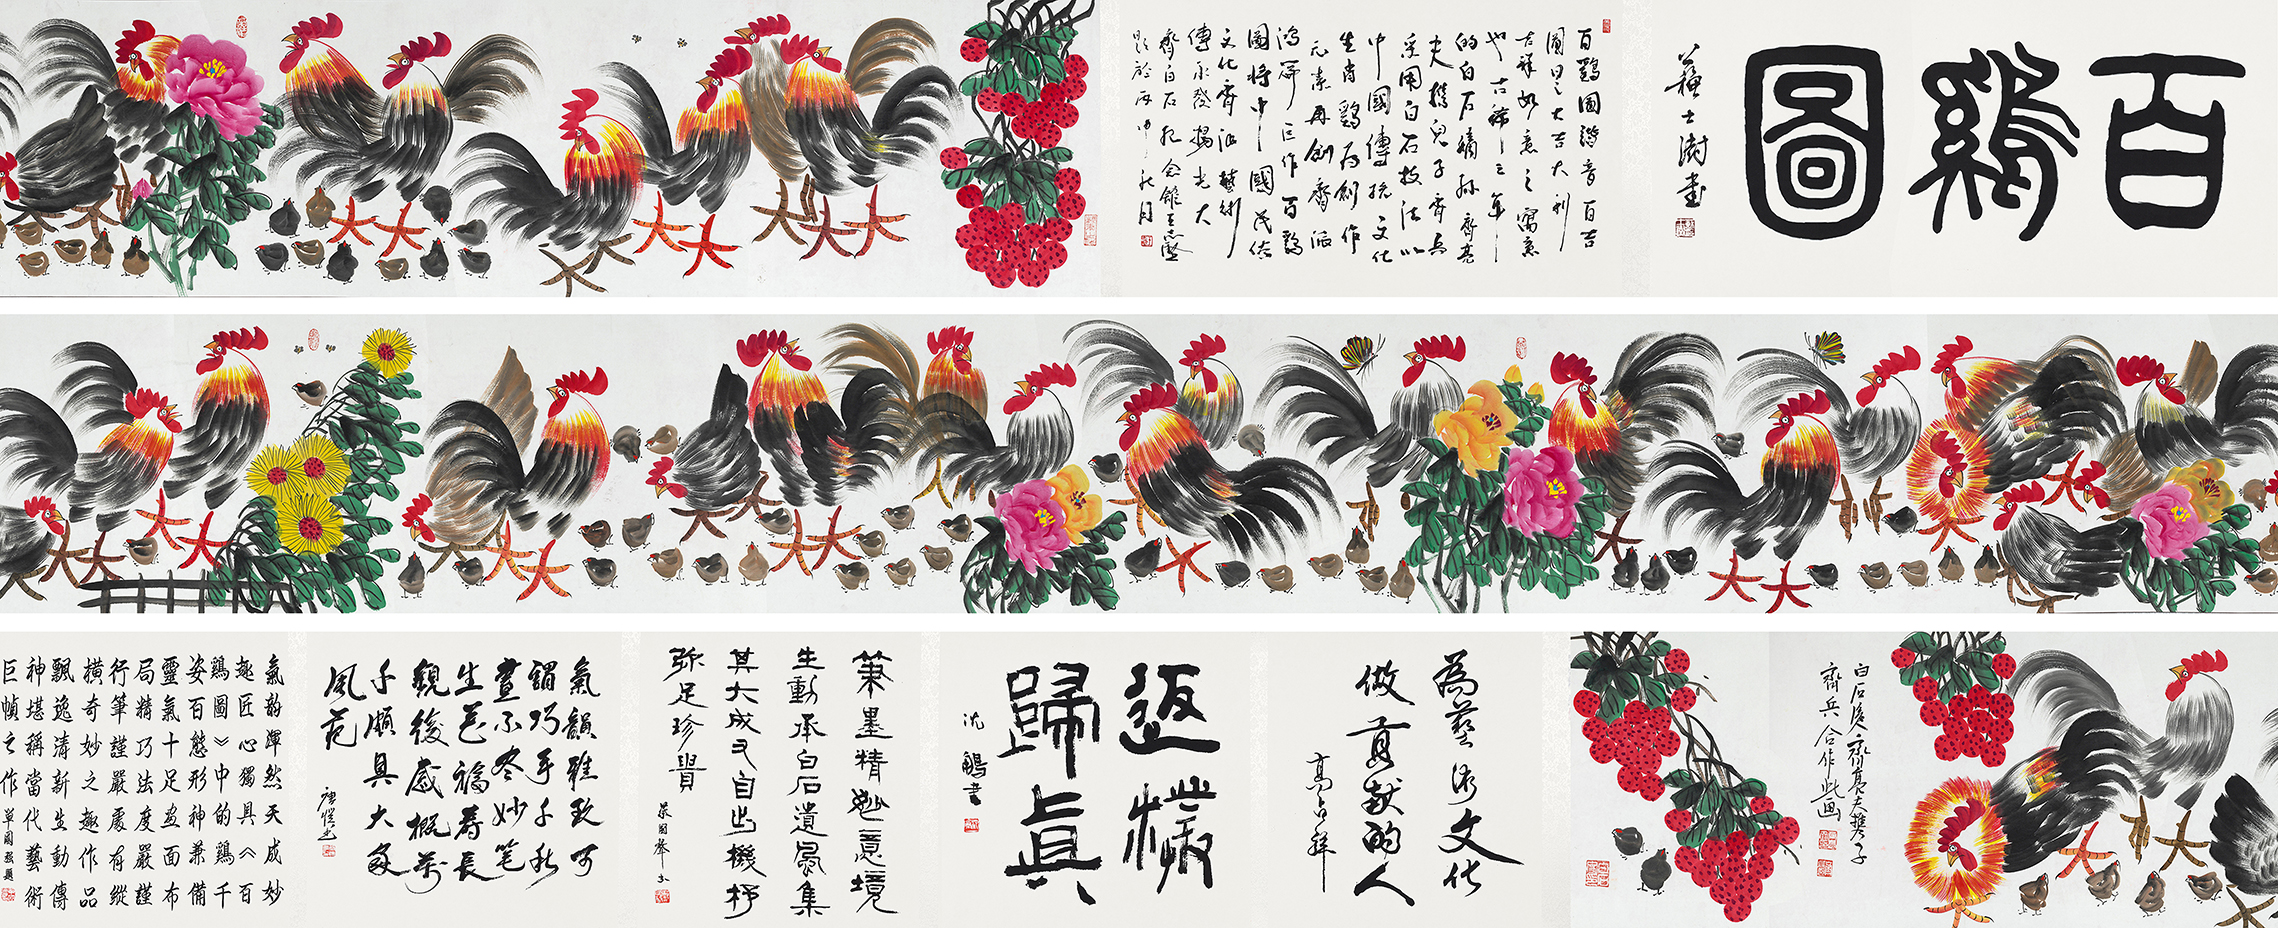 百鷄圖
蘇士澍書
百鷄圖諧音百吉
圖曰之大吉大利
吉祥如意之寓意
也古稀之年
的白石嫡孫齊
夫携兒子齊兵
采用白石技法以
中國傳統文化
生肖鷄為創作
元素再創齊派
鴻篇巨作百鷄
圖將中國民俗
文化齊派藝術
傳承發揚光大
齊白石紀念館王志堅
題於丙申秋月
白石後人齊夫携子
齊兵合作此画
為藝術文化
做貢獻的人
高占祥
返樸
歸真
沈鵬書
筆墨精妙意境
生動承白石遺風集
其大成又自出機杼
弥足珍貴
氣韻雅致可
謂巧手千秋
畫不盡妙笔
生花福壽長
觀後感概萬
千頗具大家
風范
氣韵渾然天成妙
趣匠心獨具《百
鷄圖》中的鷄千
姿百態形神兼備
靈氣十足畫面布
局精巧法度嚴謹
行筆謹嚴處有縱
橫奇妙之趣作品
飄逸清新生動傳
神堪稱當代藝術
巨幀之作 單國強題